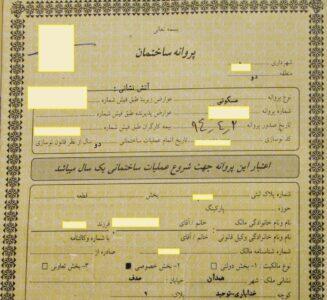 بسمه تعالی
پروانه ساختمان
شهرداری
منطقه دو
آتش نشانی :
نوع پروانه مسکونی عوارض زیربنا طبق فیش شماره
شماره پروانه عوارض پذیره طبق فیش شماره
تاریخ صدور پروانه ۹۴،۴،۲ بیمه کارگران طبق فیش شماره
کد نوسازی تاریخ اتمام عملیات ساختمانی دو سال از نظر قانون نوسازی
اعتبار این پروانه جهت شروع عملیات ساختمانی یک سال میباشد
شماره پلاک ثبتی بخش قطعه
حوزه پارکینگ
نام و نام خانوادگی مالک خانم / آقای فرزند
نام و نام خانوادگی وکیل قانونی خانم / آقای با شماره وکالتنامه
شماره شناسنامه مالک صادره از
نوع مالکیت : ۱- بخش دولتی ۲- بخش خصوصی ۳- بخش تعاونی
نشانی ملک شهر همدان خیابان : صدف
کوچه خدایاری-توحید پلاک ۲